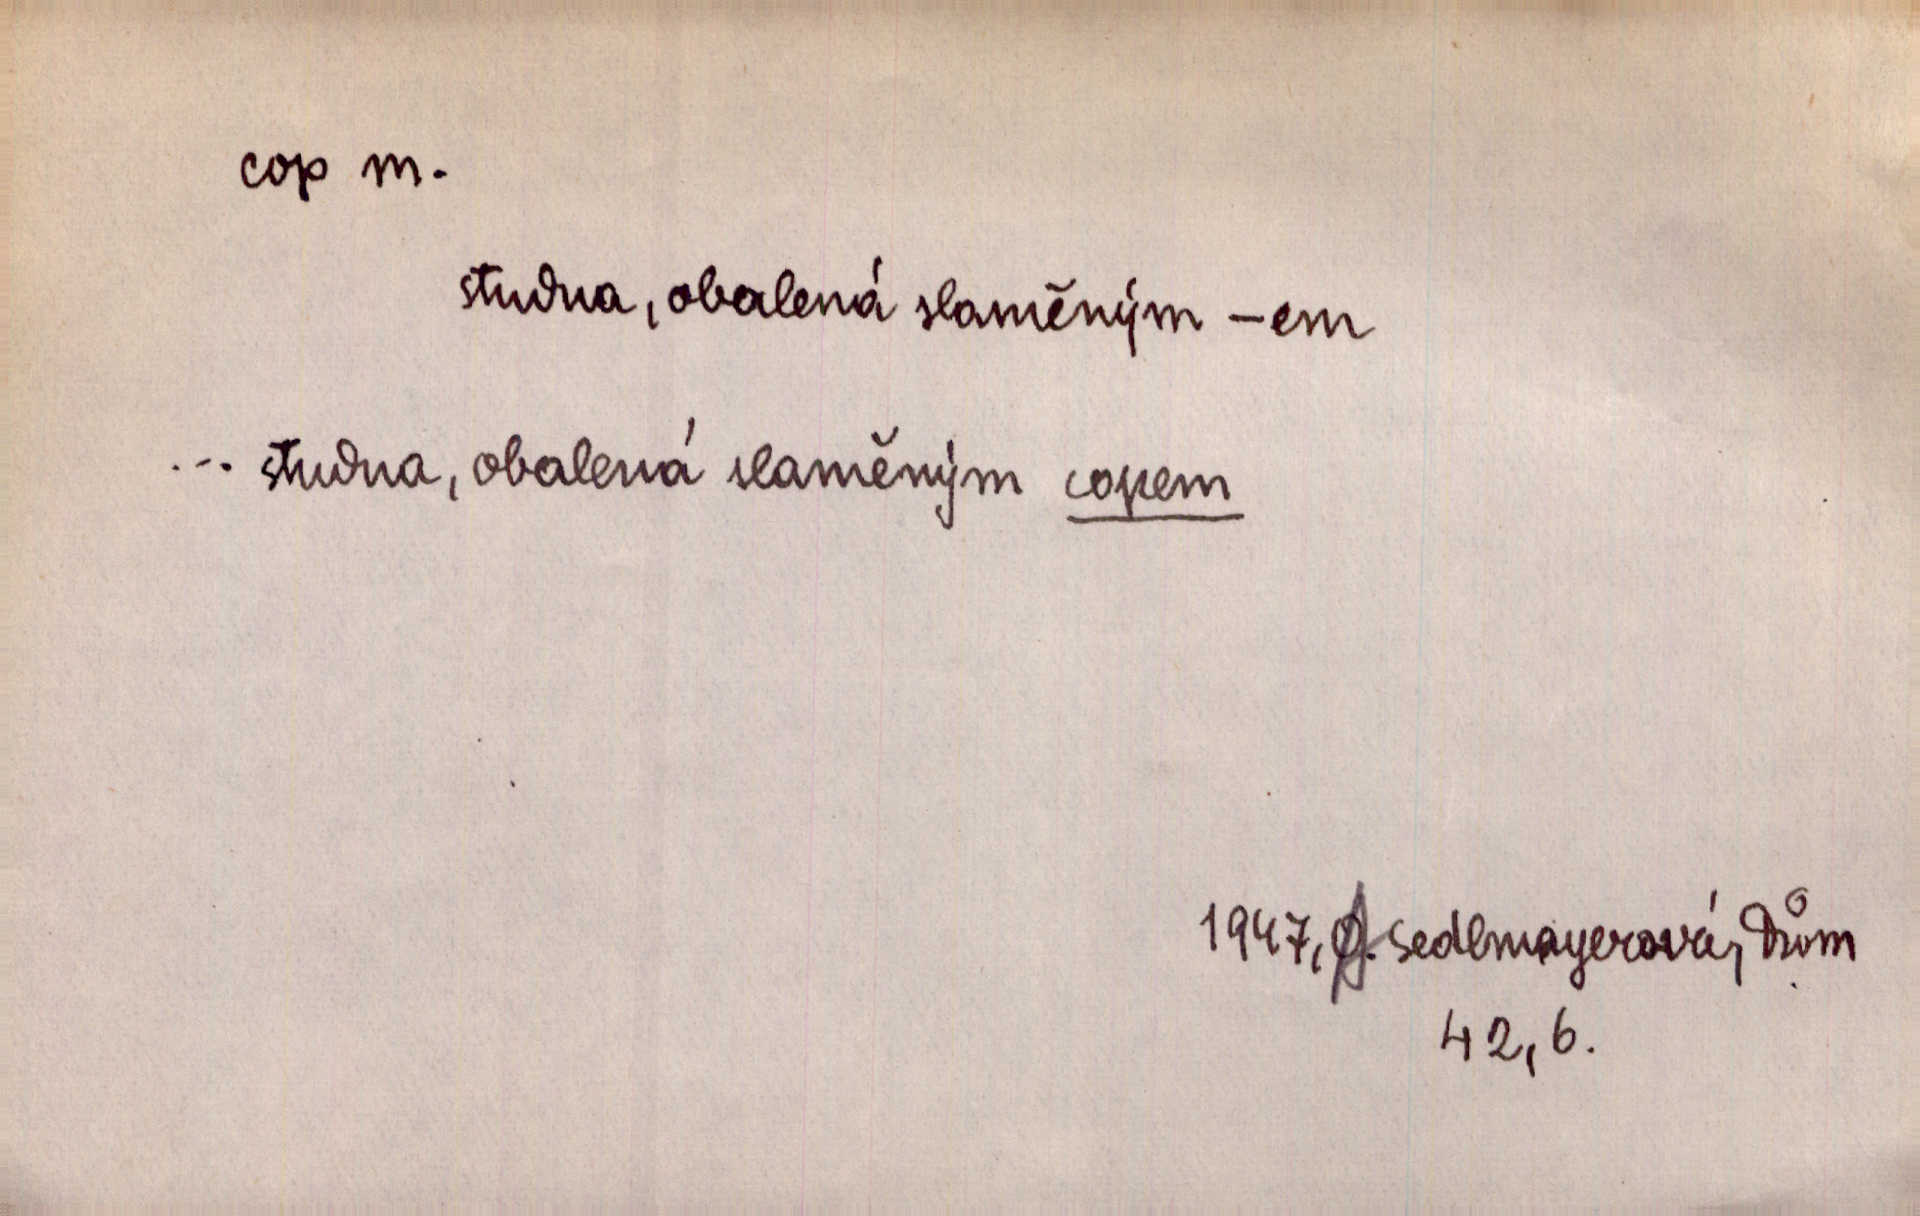 cop m.
studna, obalená slaměným –em
... studna, obalená slaměným copem
1947, A. Sedlmayerová, Dům
42, 6.